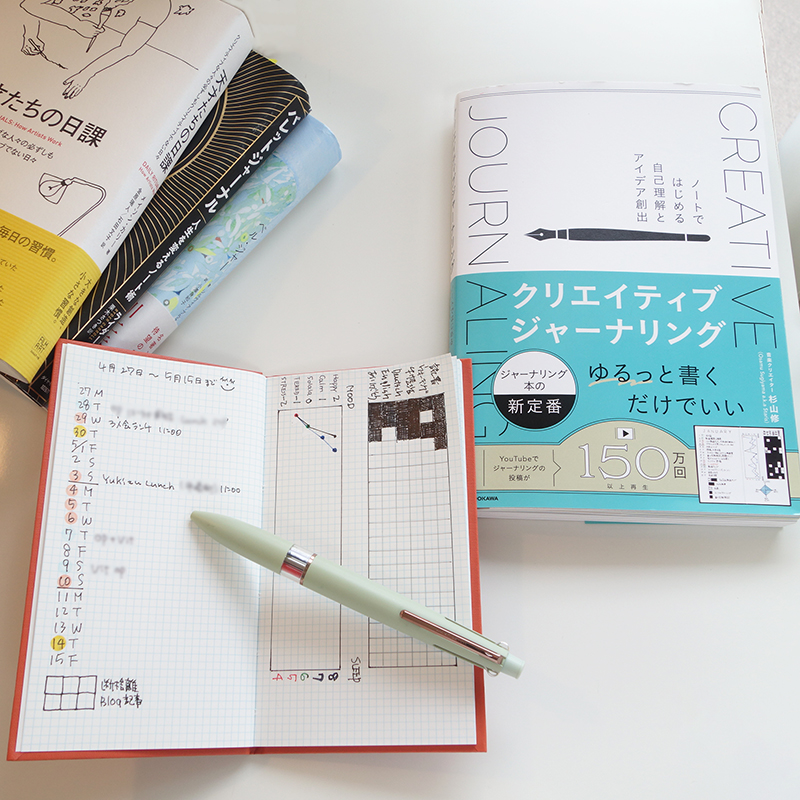 たちの日課
RITUALS: How Artists Work
な人々の必ずしも
ブでない日々
毎日の習慣。
天才たちの日課
バレットジャーナル
人生を変えるノート術
ベル・ジャー
CREATIVE
JOURNALING
ノートで
はじめる
自己理解と
アイデア創出
クリエイティブ
ジャーナリング
ジャーナリング
本の
新定番
ゆるっと書く
だけでいい
杉山修
YouTubeで
ジャーナリングの
投稿が
150万回
以上再生
KADOKAWA
4月27日〜5月15日まで
27 M
28 T
29 W 3人会ランチ 11:00
30 T
5/1 F
2 S
3 S Yukiew Lunch 11:00
4 M
5 T
6 W
7 T
8 F
9 S
10 S
11 M
12 T
13 W
14 T
15 F
断捨離
Blog記事
MOOD
Happy 2
Calm 1
Tense -1
Stress -2
読書
English
Deutsch
SLEEP
8
7
6
5
4